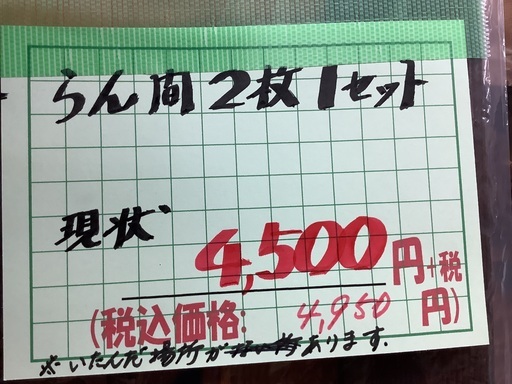 らん間2枚1セット
現状
4,500円+税
(税込価格: 4,950円)
※いたんだ場所があります.